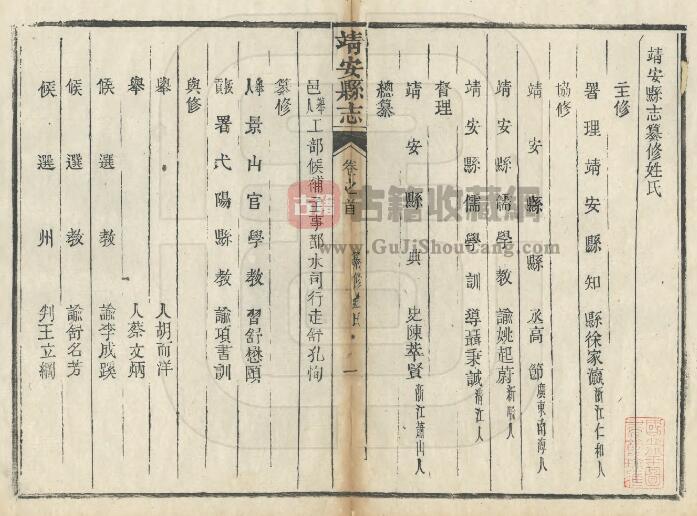 靖安縣志纂修姓氏
主修
署理靖安縣知縣徐家瀛浙江仁和人
協修
靖安縣縣丞高節廣東南海人
靖安縣儒學教諭姚起蔚新喻人
靖安縣儒學訓導聶秉誠清江人
督理
靖安縣典史陳萃賢浙江蕭山人
總纂
靖安縣志
卷之首
纂修姓氏
一
邑舉人工部候補主事都水司行走舒孔恂
纂修
舉人景山官學教習舒懋頤
拔貢署弋陽縣教諭項書訓
與修
舉人胡向洋
舉人蔡文炳
候選教諭李成蹊
候選教諭舒名芳
候選州判王立綱
古籍
古籍收藏網
www.GuJiShouCang.com